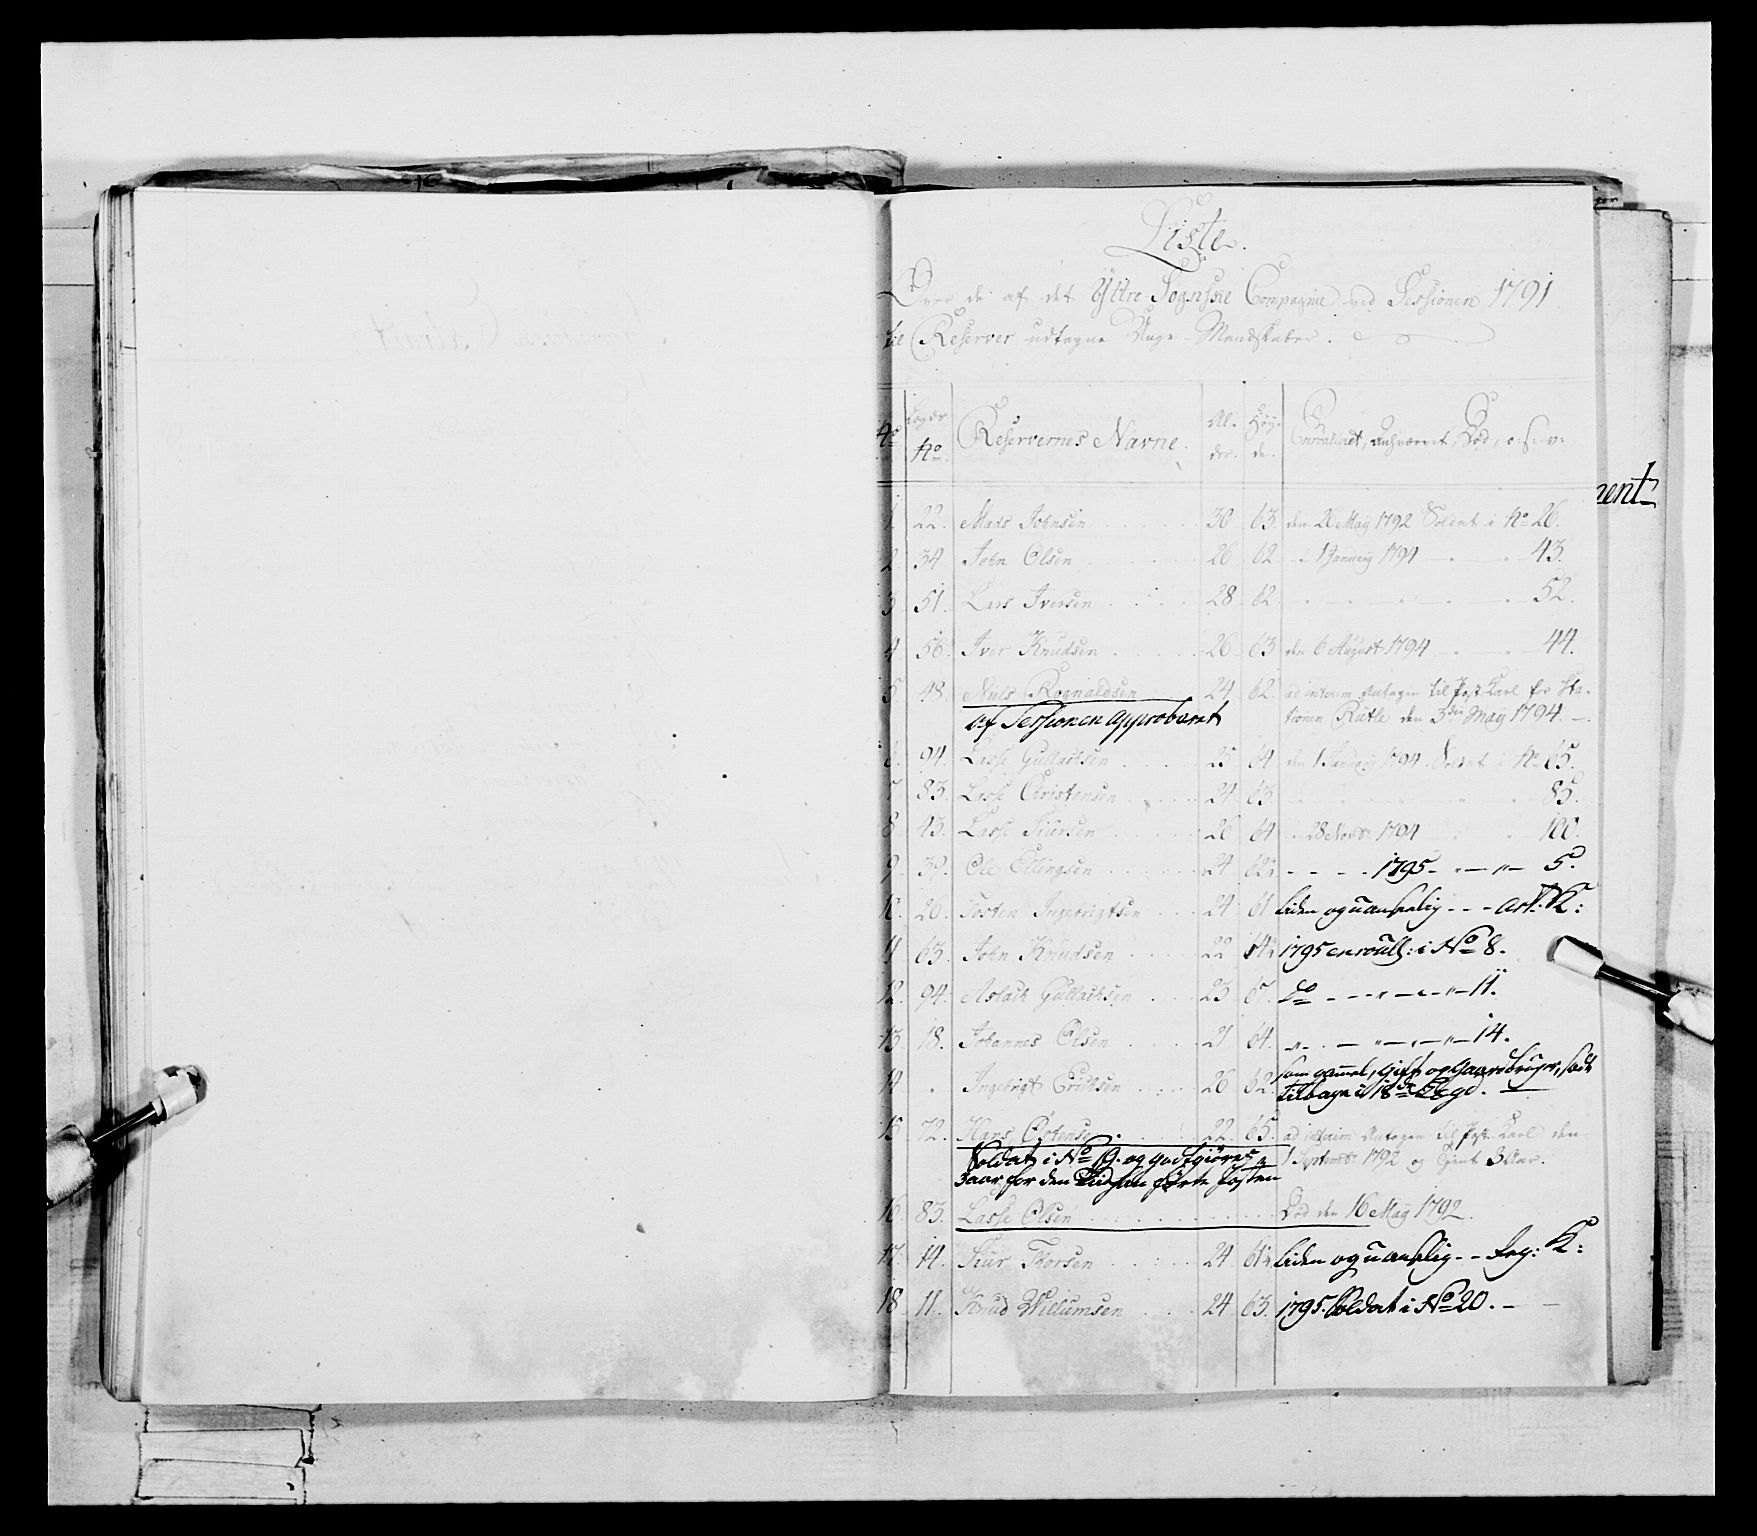 Liste.
Over de af det Yttre Sognske Compagnie ved Sessionen 1791
til Reserver udtagne Unge Mandskaber.
No Lægds No Reservernes Navne. Al-der. Høy-de. Enrouleret, Død, o: s: v:
1. 22. Mads Johnsen 30 63. den 26 May 1792 Soldat i No 26.
2. 34 John Olsen 26 62. - 1 Januarij 1794 - 43.
3 51. Lars Iversen 28 62 - 52.
4 56. Iver Knudsen 26 63 den 6 August 1794 - 44.
5 48. Niels Rognaldsen 24 62. ad interim Antagen til Post Karl for Sta-
af Sessionen approberet tionen Rutle den 3die May 1794. -
6. 94. Lasse Gullachsen 25 64 den 1 Januarij 1794 Soldat i No 65.
7 83. Lasse Christensen 24 63 - 85.
8 43. Lasse Siursen 26 64 - 28 Novbr: 1794 - 100.
9 39. Ole Ellingsen 24 62½ - - - - 1795 - - 5.
10. 20. Tosten Ingebrigtsen 24 61 liden og uanseelig - - - Art: K:
11 63. John Knudsen 22 64½ 1795 enroull: i No 8.
12. 94. Aslach Gullachsen 23 67. do - - - 11.
13 18. Johannes Olsen 21 64. - - - 14.
14 " Ingebrigt Erichsen 26 62. som gammel, gift og Gaardbruger, sadt
tilbage i 18de Lægd. -
15 72. Hans Ostensen 22. 65. ad interim Antagen til Post Karl den
Soldat i No 19. og godtgiøres 1 Septembr: 1792 og tient 3 Aar.
3 aar for den Tiid han førte Posten
16. 83. Lasse Olsen Død den 16 May 1792.
17. 14. Siur Thorsen 24 61½ liden og uanselig - - Reg: K:
18 11. Knud Willumsen 24 63. 1795 Soldat i No 20. -
nent